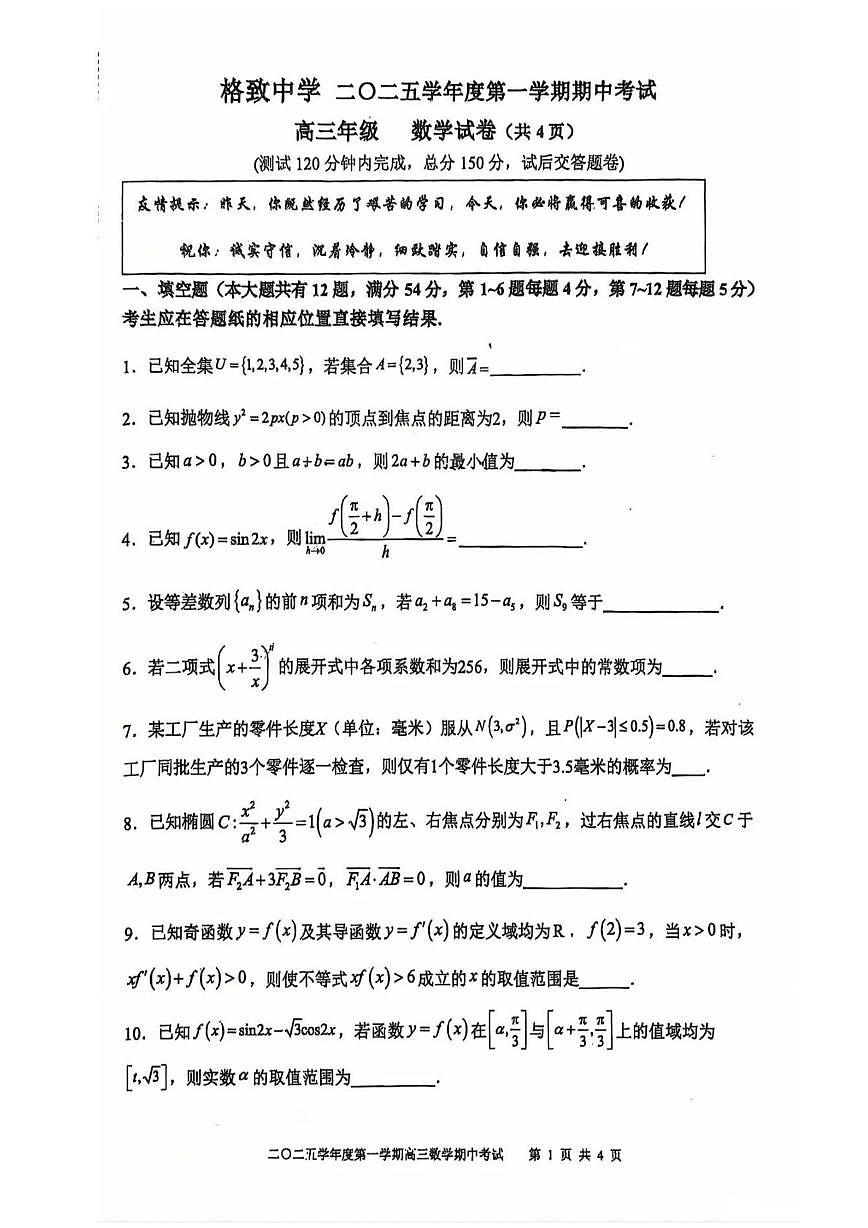 格致中学 二〇二五学年度第一学期期中考试
高三年级 数学试卷(共4页)
(测试120分钟内完成,总分150分,试后交答题卷)
友情提示:昨天,你既然经历了艰苦的学习,今天,你必将赢得可喜的收获!
祝你:诚实守信,沉着冷静,细致踏实,自信自强,去迎接胜利!
一、填空题(本大题共有12题,满分54分,第1~6题每题4分,第7~12题每题5分)
考生应在答题纸的相应位置直接填写结果.
1. 已知全集U={1,2,3,4,5},若集合A={2,3},则A̅=________.
2. 已知抛物线y²=2px(p>0)的顶点到焦点的距离为2,则p=______.
3. 已知a>0,b>0且a+b=ab,则2a+b的最小值为______.
4. 已知f(x)=sin2x,则lim_{h→0} [f(π/2+h)-f(π/2)]/h=________.
5. 设等差数列{aₙ}的前n项和为Sₙ,若a₂+a₈=15-a₅,则S₉等于________.
6. 若二项式(x+3/x)ⁿ的展开式中各项系数和为256,则展开式中的常数项为_____.
7. 某工厂生产的零件长度X(单位:毫米)服从N(3,σ²),且P(|X-3|≤0.5)=0.8,若对该
工厂同批生产的3个零件逐一检查,则仅有1个零件长度大于3.5毫米的概率为___.
8. 已知椭圆C:x²/a²+y²/3=1(a>√3)的左、右焦点分别为F₁,F₂,过右焦点的直线l交C于
A,B两点,若F₂A+3F₂B=0,F₁A·AB=0,则a的值为________.
9. 已知奇函数y=f(x)及其导函数y=f′(x)的定义域均为R,f(2)=3,当x>0时,
xf′(x)+f(x)>0,则使不等式xf(x)>6成立的x的取值范围是_____.
10. 已知f(x)=sin2x-√3cos2x,若函数y=f(x)在[α,π/3]与[α+π/3,π/3]上的值域均为
[t,√3],则实数α的取值范围为_______.
二〇二五学年度第一学期高三数学期中考试 第 1 页 共 4 页